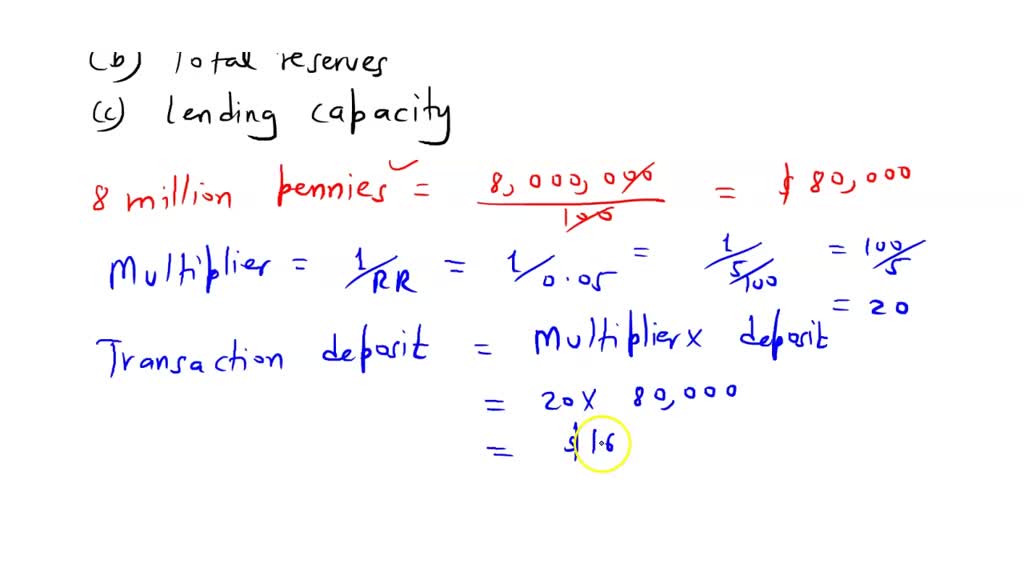 (b) Total reserves
(c) lending capacity
8 million pennies = 8,000,000/100 = $ 80,000
Multiplier = 1/RR = 1/0.05 = 1/5/100 = 100/5
= 20
Transaction deposit = Multiplier x deposit
= 20 x 80,000
= $ 1.6